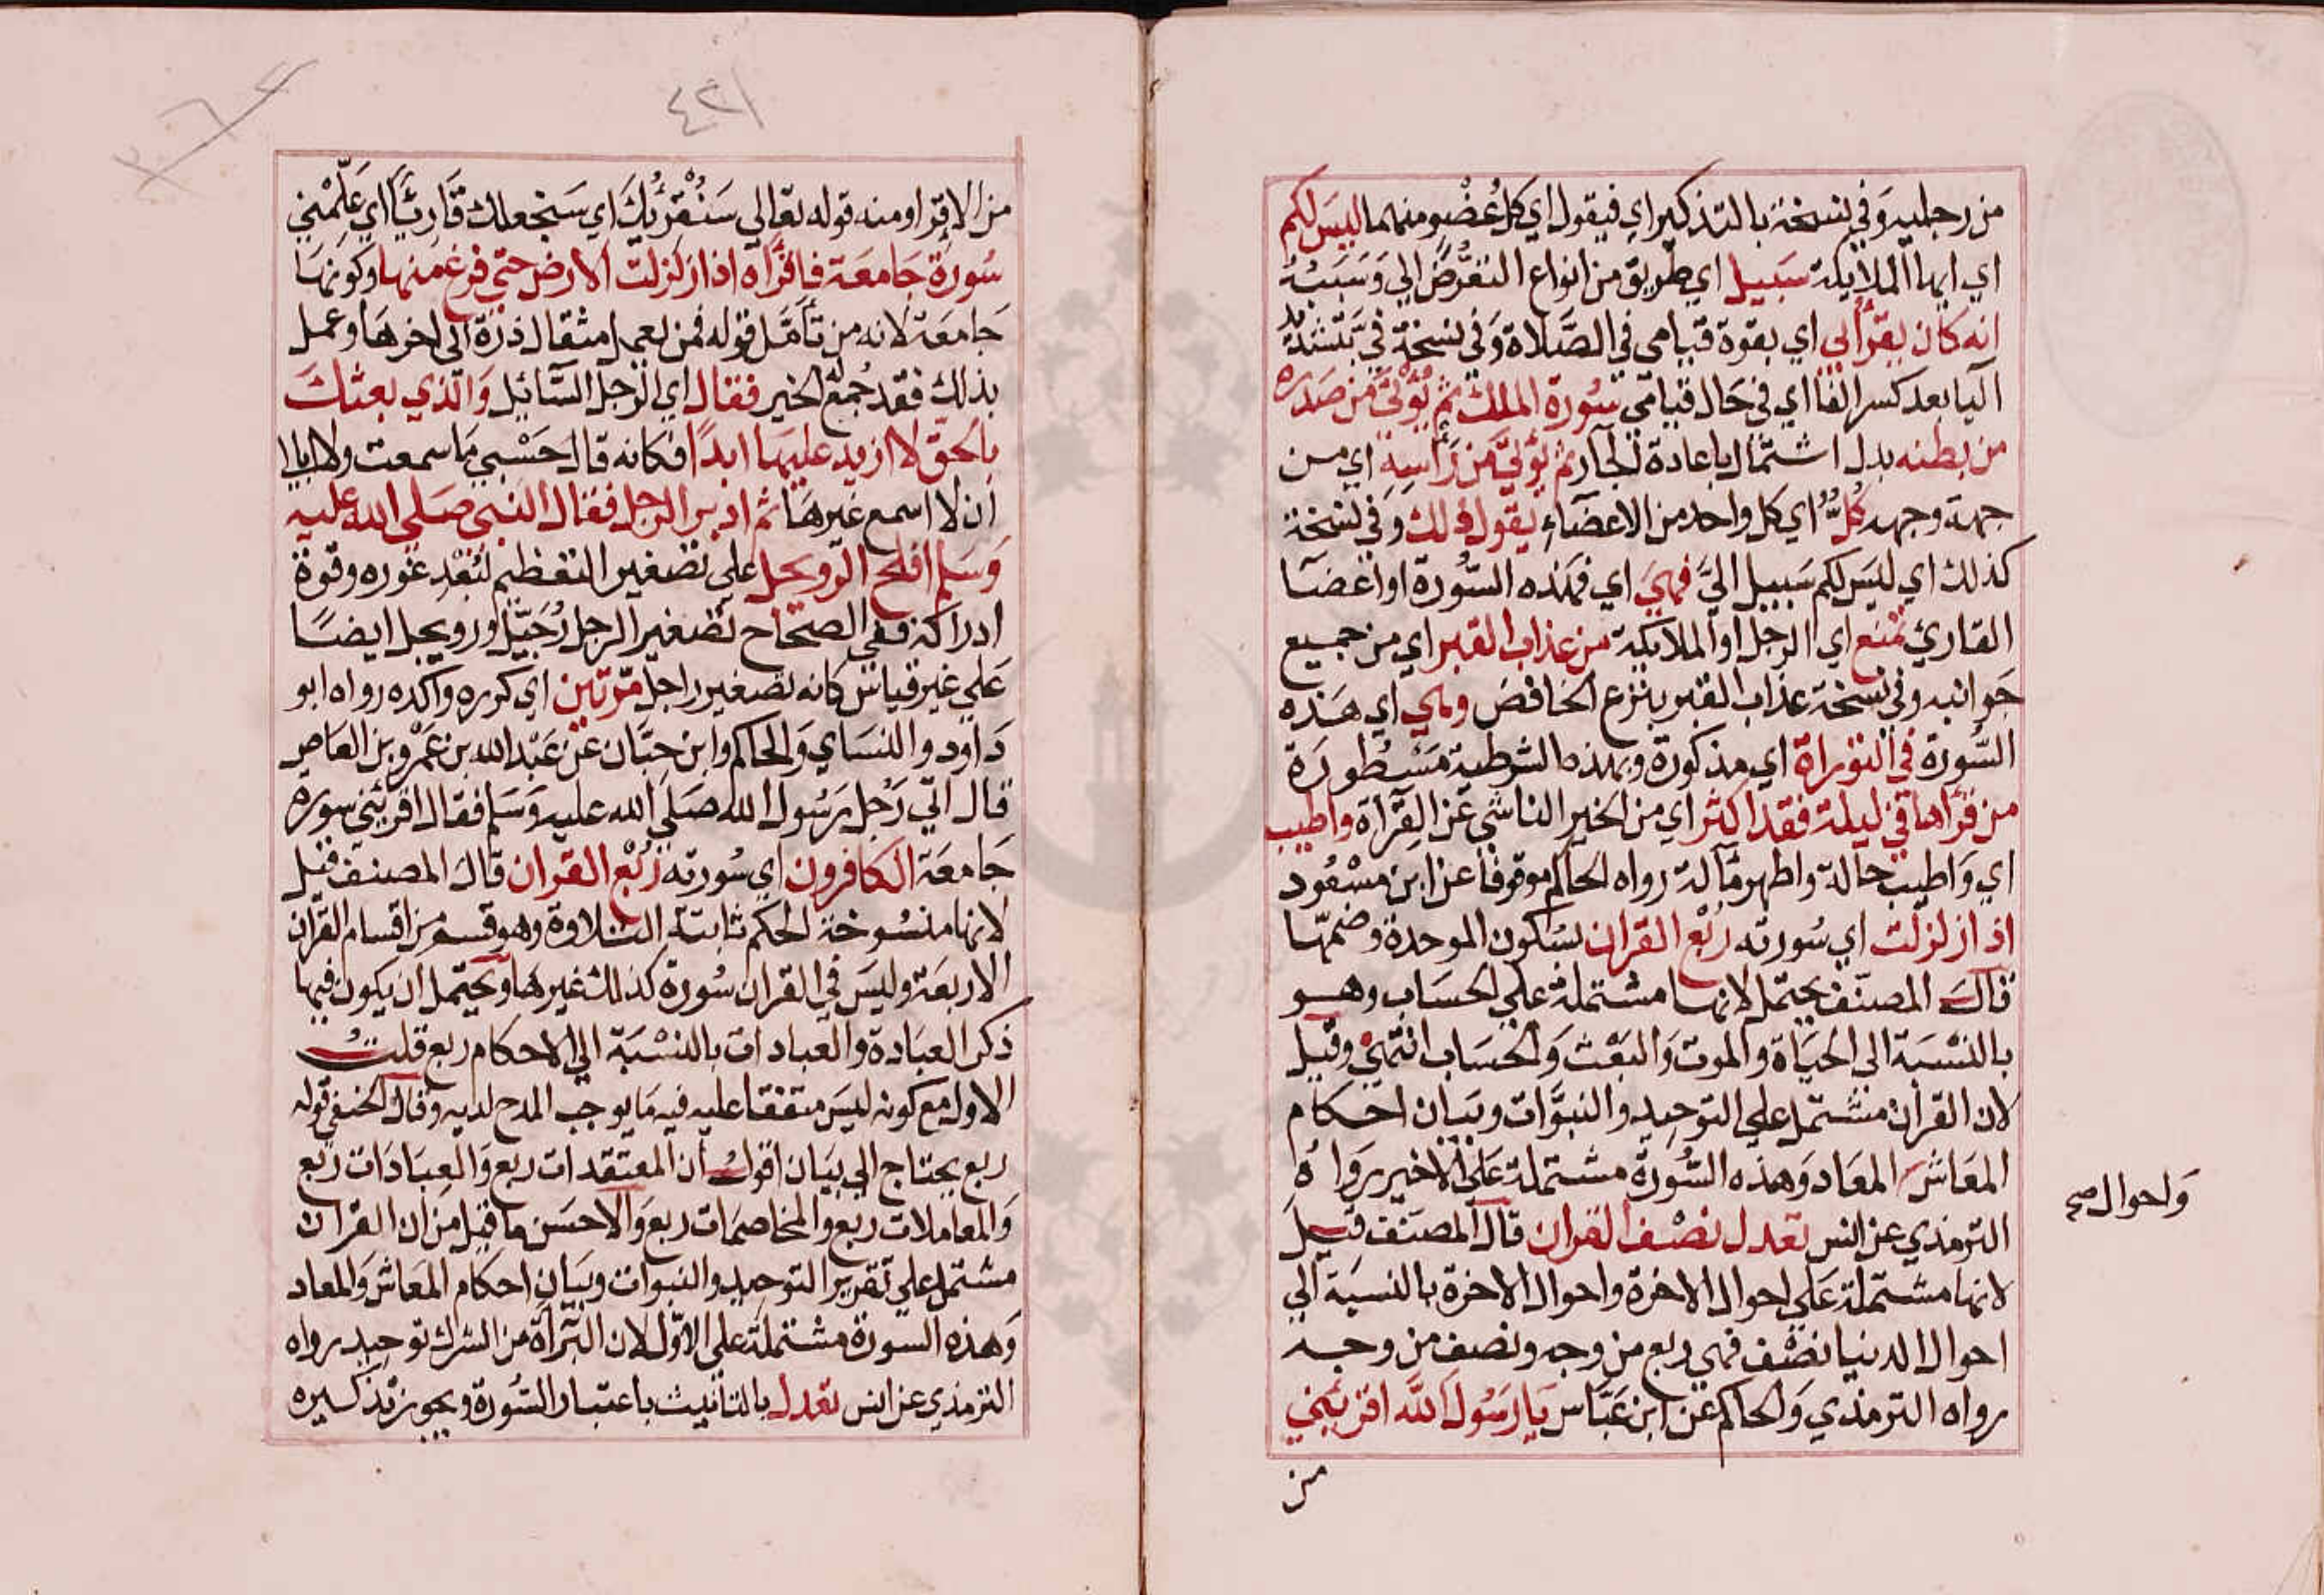 من رجليه وفي نسخة بالتذكير اي فيقول اي كل عُضْو منهما ليس لكم
اي ايها الملايكة سبيل اي طريق من انواع التعرُّض الي وَسَبَبُهُ
انه كان يقرأ بي اي بقوة قيامي في الصَّلاة وَفي نسخة فيّ بتشديد
اليا بعد كسر الفا اي في حَال قيامي سُورة الملك ثم يُؤتى من صَدره
من بطنه بدل اشتمال باعادة الجار ثم يؤتيَّ من رَأسِهِ اي من
جهة وجهه كُلٌّ اي كل واحد من الاعضاءِ يقول ذلك وَفي نسخة
كذلك اي ليسَ لكم سَبيل اليَّ فهيَ اي فهذه السُّورة او اعضَا
القاريُ تمنع اي الرجل او الملايكة من عذاب القبر اي من جميع
جَوانبه وفي نسخة عذاب القبر بنزع الخافض وهي اي هَذه
السُّورة في التوراة اي مذكورة وبهذه الشرطية مَسْطورَة
من قرأها في ليلة فقد اكثر اي من الخير الناشي عَن القرآة واطيب
اي وَاطيب حالة واطهر مآلة رواه الحاكم موقوفا عن ابن مسْعُود
اذا زلزلت اي سُورته ربْع القرآن بسُكون الموحدة وضمهّا
قالَ المصنّف يحتمل لانها مشتملة عَلي الحسَاب وهو
بالنسْبَة الى الحيَاة والموت وَالبَعْث وَالحسَاب انتهيٰ وقيل
لان القرأن مشتمل علي التوحيد والنبوَّات وبيَان احكام
المعَاش المعَاد وَهذه السُّورة مشتملة عَلي الاخير روَاهُ
وَاحوال صح
الترمذي عن انس تعدل نصْف القرآن قال المصنف قيلَ
لانها مشتملة عَلي احوال الاخرة واحوال الاخرة بالنسبَة الي
احوال الدنيا نصْف فهي ربع من وجه ونصف من وجه
رواه الترمذي وَالحاكم عَن ابن عَبَّاس يَا رَسُولَ اللَّه اقرئني
من
٤٢١
من الاِقرا ومنه قوله تعَالي سَنُقْرِئُكَ اي سَنجعلك قَاريًّا اي عَلّمْني
سُورَة جَامعَة فاقرَأَه اذا زلزلت الارض حتي فرغ منها وكونهَا
جَامعَة لانه من تأمَّل قوله فمن يعمل مثقال ذرة الى اخرهَا وعمل
بذلك فقد جُمع له الخير فقال اي الرجل السَّائل وَالّذي بعثك
بالحقّ لا ازيد عليهَا ابدًا فكانه قال حَسْبي مَا سمعت ولا ابالي
ان لا اسمع غيرهَا ثم ادبر الرجل فقال النبي صَلي الله عليه
وَسَلم افلح الرّويجل علي تصغير التعظيم لبُعْدِ غوره وقوة
ادراكه ففي الصحَاح تصْغير الرجل رُجَيّل ورويجل ايضًا
عَلي غير قياس كانه تصْغير راجل مرّتين اي كرره وَاكده رواه ابو
دَاود والنسَاي وَالحاكم وابن حبَّان عَن عَبْد الله بن عَمْرو بن العَاص
قال اتَي رَجُل رَسُول الله صَلي الله عليه وَسَلم فقال اقرئني سوره
جَامعَة الكافرون اي سُورته رُبْع القرآن قال المصنف قيل
لانها منسُوخة الحكم ثابتة التلاوة وهو قسم من اقسام القرآن
الاربعَة وليسَ في القرآن سُورة كذلك غيرهَا ويحتمل ان يكون فيها
ذكر العبَادة والعبادات بالنسْبَة الي الاحكام ربع قلتُ
الاول مع كونه ليسَ متفقا عليه فيه مَا يوجب المدح لديه وقال الحنفي قوله
ربع يحتاج الي بيَان اقول ان المعتقدات ربع وَالعبَادَات ربع
وَالمعاملات ربع والمخاصمَات ربع وَالاحسَن ما قيل من ان القرآن
مشتمل علي تقرير التوحيد والنبوات وبيَان احكام المعَاش وَالمعاد
وَهذه السورة مشتملة علي الاوّل لان البَرآة من الشرك توحيد رواه
الترمذي عن انس تعدل بالتانيث باعتبار السُّورة ويجوز تذكيره